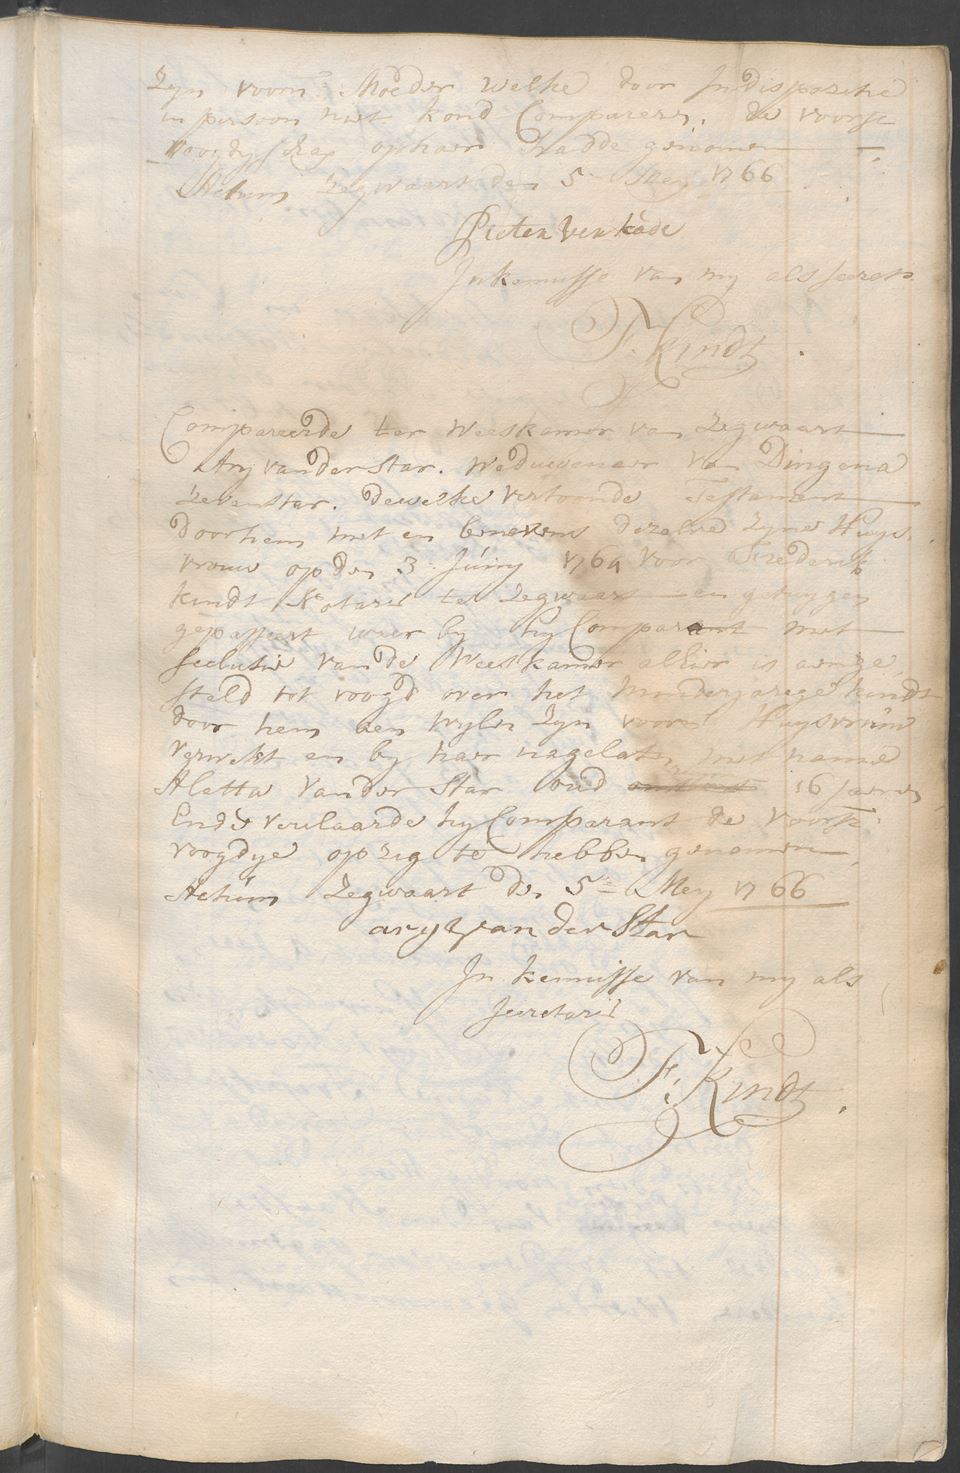 Zijn voorn: Moeder welke door Indispositie
in persoon niet kond Compareren, de voorsz
voogdyschap op haar hadde genomen
Actum Zegwaart den 5 Mey 1766
Pieter verkade
In kennisse van my als secrets
F. Kindt
Compareerde ter Weeskamer van Zegwaart
Ary van der Star. Weduwenaer van Dingena
Zevenstar. dewelke vertoonde Testament
door hem met en benevens dezelve Zyne Huys
vrouw op den 3 Juny 1764 voor Frederik
kindt Notaris te Zegwaart en getuygen
gepasseert waer by hy Comparant met
seclusie van de Weeskamer alhier is aenge
steld tot voogd over het minderjarige kindt
door hem aen wylen Zyn voorn Huysvrouw
verwekt en by haer nagelaten met name
Aletta van der Star oud 16 Jaren
Ende verclaarde hy Comparant de voorsz
voogdye op Zig te hebben genomen
Actum Zegwaart den 5 Mey 1766
ary van der Star
In kennisse van my als
secretaris
F: Kindt